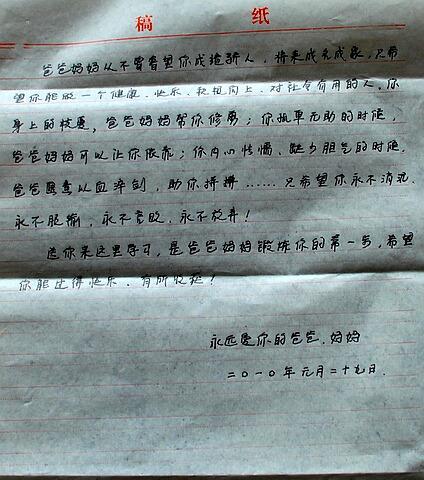 稿 纸
爸爸妈妈从不奢望你成龙骄人、将来成名成家,只希
望你能成一个健康、快乐、积极向上、对社会有用的人,你
身上的枝蔓,爸爸妈妈帮你修剪;你孤单无助的时候,
爸爸妈妈可以让你依靠;你内心怯懦、缺少胆气的时候,
爸爸愿意以血淬剑,助你拼搏……只希望你永不消沉、
永不服输、永不言败、永不放弃!
送你来这里学习,是爸爸妈妈锻炼你的第一步,希望
你能过得快乐、有所收获!
永远爱你的爸爸、妈妈
二〇一〇年元月二十九日.